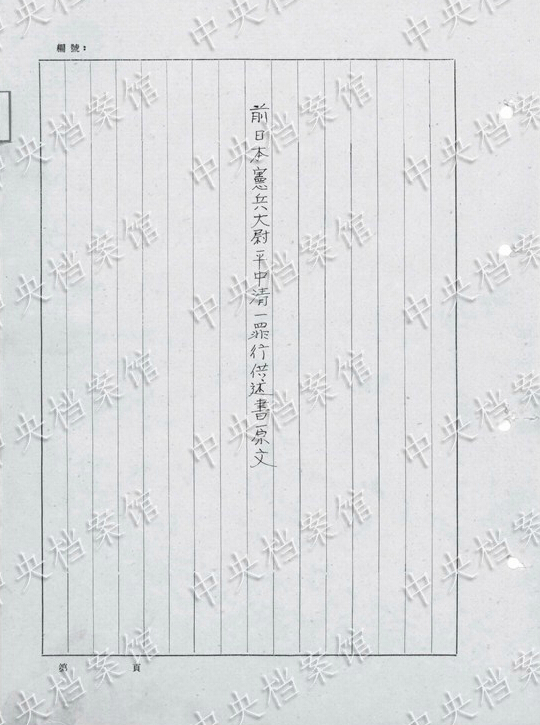 欄號：
前日本憲兵大尉平中清一罪行供述書原文
第 頁
中央档案馆